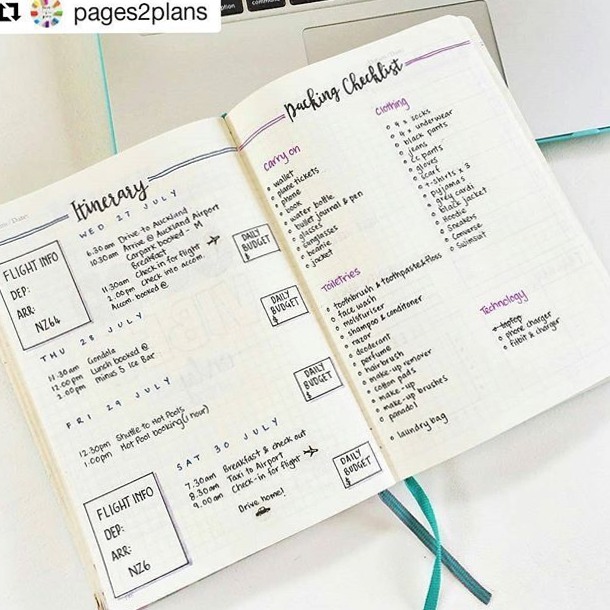 pages2plans
command
Itinerary
WED 27 JULY
6.30am Drive to Auckland
10.30am Arrive @ Auckland Airport
Carpark booked - M
Breakfast
11.30am Check in for flight
2.00pm check into accom.
Accom. booked @
FLIGHT INFO
DEP:
ARR:
NZ64
DAILY
BUDGET
$
THU 28 JULY
11.30am Gondola
12.00pm Lunch booked @
2.00pm minus 5 Ice Bar
DAILY
BUDGET
$
FRI 29 JULY
12:30pm Shuttle to Hot Pools
1:00pm Hot Pool booking (1 hour)
DAILY
BUDGET
$
SAT 30 JULY
7.30am Breakfast & check out
8.30am Taxi to Airport
9.00am Check-in for flight
Drive home!
FLIGHT INFO
DEP:
ARR:
NZ6
DAILY
BUDGET
$
Packing Checklist
Carry on
wallet
plane tickets
phone
book
water bottle
bullet journal & pen
glasses
sunglasses
beanie
jacket
Toiletries
toothbrush & toothpaste & floss
face wash
moisturiser
shampoo & conditoner
razor
deoderant
perfume
hairbrush
make-up remover
cotton pads
make-up
make-up brushes
panadol
laundry bag
Clothing
4 x socks
4 x underwear
black pants
jeans
cc pants
gloves
scarf
t-shirts x 3
pyjamas
grey cardi
black jacket
Hoodie
Sneakers
Converse
Swimsuit
Technology
laptop
phone charger
fitbit & charger